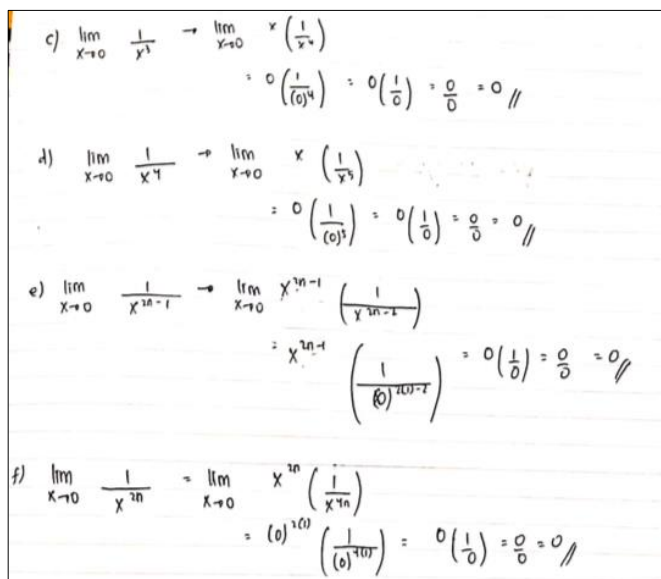 c) lim x→0 1/x³ → lim x→0 x (1/x⁴)
= 0 (1/(0)⁴) = 0(1/0) = 0/0 = 0 //
d) lim x→0 1/x⁴ → lim x→0 x (1/x⁵)
= 0 (1/(0)⁵) = 0(1/0) = 0/0 = 0 //
e) lim x→0 1/x²ⁿ⁻¹ → lim x→0 x²ⁿ⁻¹ (1/x²ⁿ⁻²)
= x²ⁿ⁻¹ (1/(0)²⁽¹⁾⁻²) = 0(1/0) = 0/0 = 0 //
f) lim x→0 1/x²ⁿ = lim x→0 x²ⁿ (1/x⁴ⁿ)
= (0)²⁽¹⁾ (1/(0)⁴⁽¹⁾) = 0(1/0) = 0/0 = 0 //